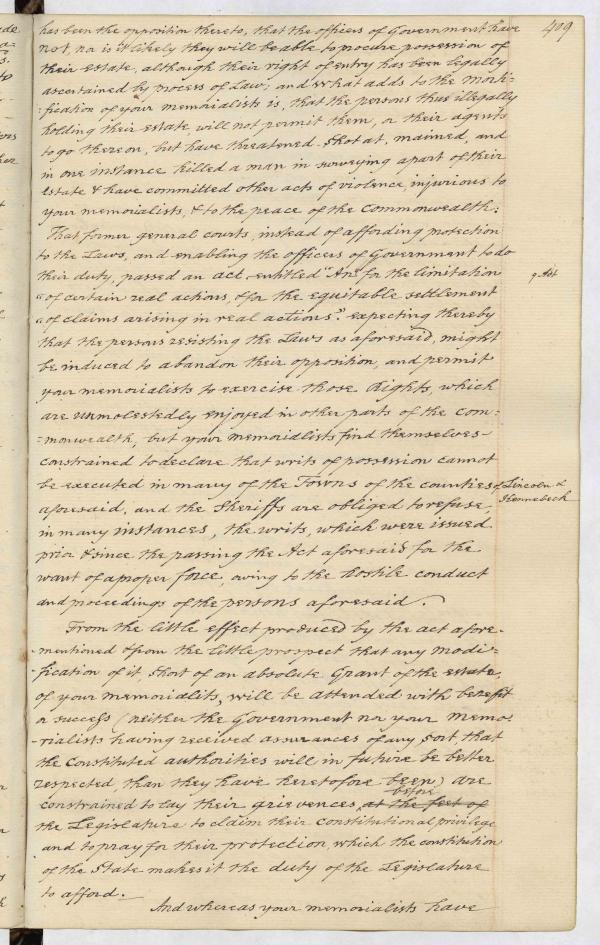 409
has been the opposition thereto, that the officers of Government have
not, nor is it likely they will be able to procure possession of
their Estate, although their right of entry has been legally
ascertained by process of Law; and what adds to the Morti-
-fication of your memorialists is, that the persons thus illegally
holding their estate, will not permit them, or their agents
to go thereon, but have threatened, Shot at, maimed, and
in one instance killed a man in surveying a part of their
estate & have committed other acts of violence, injurious to
your memorialists, & to the peace of the Commonwealth:
That former general courts, instead of affording protection
to the Laws, and enabling the officers of Government to do
their duty, passed an act entitled "An for the limitation
"of certain real actions, & for the equitable settlement
"of claims arising in real actions". expecting thereby
that the persons resisting the Laws as aforesaid, might
be induced to abandon their opposition, and permit
your memorialists to exercise those Rights, which
are unmolestedly enjoyed in other parts of the Com-
-monwealth, but your memorialists find themselves
constrained to declare that writs of possession cannot
be executed in many of the Towns of the counties
aforesaid, and the Sheriffs are obliged to refuse,
in many instances, the writs, which were issued
prior & since the passing the Act aforesaid for the
want of a proper force, owing to the hostile conduct
and proceedings of the persons aforesaid.
Act
of Lincoln &
Kennebeck
From the little effect produced by the act afore-
-mentioned & from the little prospect that any modi-
-fication of it, Short of an absolute Grant of the estate,
of your memorialits, will be attended with benefit
or success (neither the Government nor your memo-
-rialists having received assurances of any sort that
the constituted authorities will in future be better
respected, than they have heretofore been) are
before
constrained to lay their grievences at the feet of
the Legislature to claim their constitutional privilege
and to pray for their protection, which the constitution
of the State makes it the duty of the Legislature
to afford.
And whereas your memorialists have